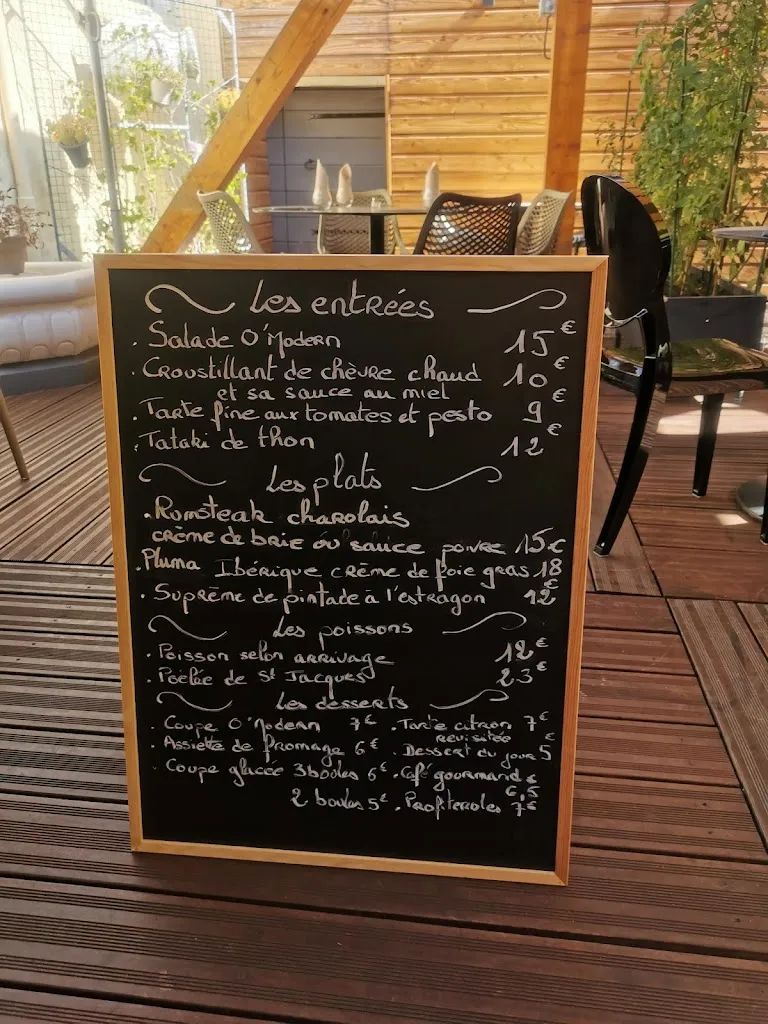 Les entrées
. Salade O'Modern 15€
. Croustillant de chèvre chaud 10€
et sa sauce au miel
. Tarte fine aux tomates et pesto 9€
. Tataki de thon 12€
Les plats
. Rumsteak charolais
crème de brie ou sauce poivre 15€
. Pluma Ibérique crème de foie gras 18€
. Suprême de pintade à l'estragon 12
Les poissons
. Poisson selon arrivage 12€
. Poêlée de St Jacques 23€
Les desserts
. Coupe O'Modern 7€ . Tarte citron 7€
revisitée
. Assiette de fromage 6€ . Dessert du jour 5€
. Coupe glacée 3 boules 6€ . Café gourmand €
6,5
2 boules 5€ . Profiteroles 7€